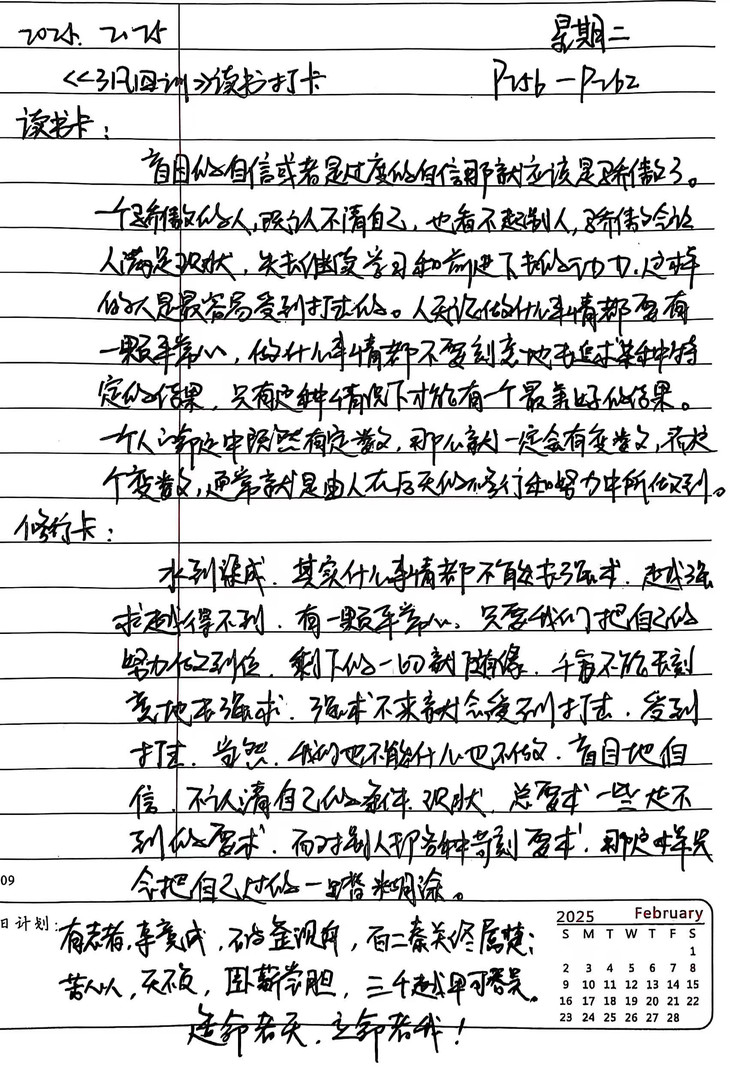 2025. 2.25 星期二
《了凡四训》读书打卡 P256—P262
读书卡：
盲目的自信或者是过度的自信那就应该是骄傲了。
一个骄傲的人，既认不清自己，也看不起别人，骄傲会让
人满足现状，失去继续学习和前进下去的动力，这样
的人是最容易受到打击的。人无论做什么事情都要有
一颗平常心，做什么事情都不要刻意地去追求某种特
定的结果，只有这种情况下才能有一个最美好的结果。
一个人命运中既然有定数，那么就一定会有变数，而这
个变数，通常就是由人在后天的修行和努力中所做到。
修行卡：
水到渠成，其实什么事情都不能去强求，越强
求越得不到，有一颗平常心，只要我们把自己的
努力做到位，剩下的一切就随缘，千万不能去刻
意地去强求，强求不来就会受到打击，受到
打击，当然，我们也不能什么也不做，盲目地自
信，不认清自己的条件，现状，总要求一些达不
到的要求，而对别人却各种苛刻要求，那这样只
会把自己过的一塌糊涂。
09
日计划：
有志者，事竟成，破釜沉舟，百二秦关终属楚；
苦心人，天不负，卧薪尝胆，三千越甲可吞吴。
造命者天，立命者我！
2025 February
S M T W T F S
1
2 3 4 5 6 7 8
9 10 11 12 13 14 15
16 17 18 19 20 21 22
23 24 25 26 27 28